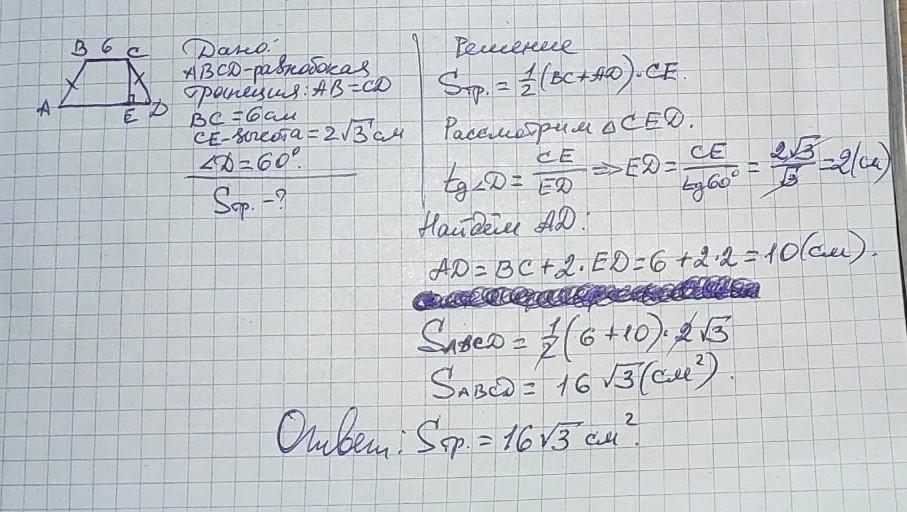 B 6 C
A E D
Дано:
ABCD-равнобокая
трапеция: AB=CD
BC=6см
CE-высота=2√3 см
∠D=60°.
Sтр.-?
Решение
Sтр.=½(BC+AD)·CE.
Рассмотрим △CED.
tg∠D= CE/ED ⇒ ED= CE/tg60° = 2√3/√3 =2(см)
Найдём AD:
AD=BC+2·ED=6+2·2=10(см).
SABCD=½(6+10)·2√3
SABCD=16√3(см²).
Ответ: Sтр.=16√3 см².